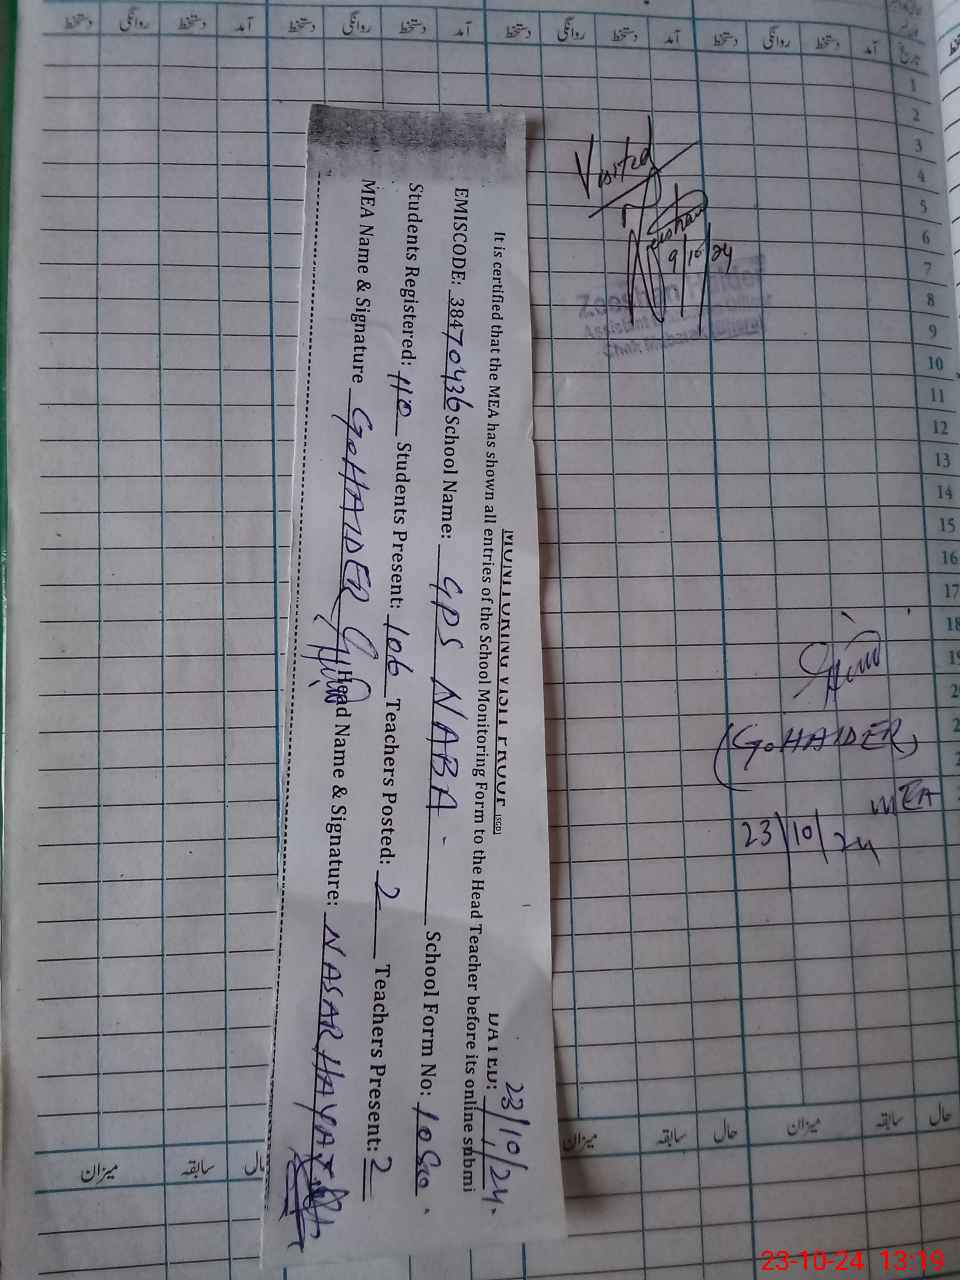 دستخط روانگی دستخط آمد دستخط روانگی دستخط آمد دستخط روانگی دستخط آمد دستخط روانگی دستخط آمد تاریخ
1
2
3
4
5
6
7
8
9
10
11
12
13
14
15
16
17
18
Visited
Zeeshan
9/10/24
Assistant
MONITORING VISIT PROOF (SGD)
DATED: 23/10/24.
It is certified that the MEA has shown all entries of the School Monitoring Form to the Head Teacher before its online submi
EMISCODE: 38470436 School Name: GPS NABA. School Form No:
Students Registered: 110 Students Present: 106 Teachers Posted: 2 Teachers Present: 2
MEA Name & Signature G.HAIDER Head Name & Signature: NASAR HAYAT
(G.HAIDER)
MEA
23/10/24
میزان سابقہ حال میزان سابقہ حال
میزان سابقہ حال
23-10-24 13:19